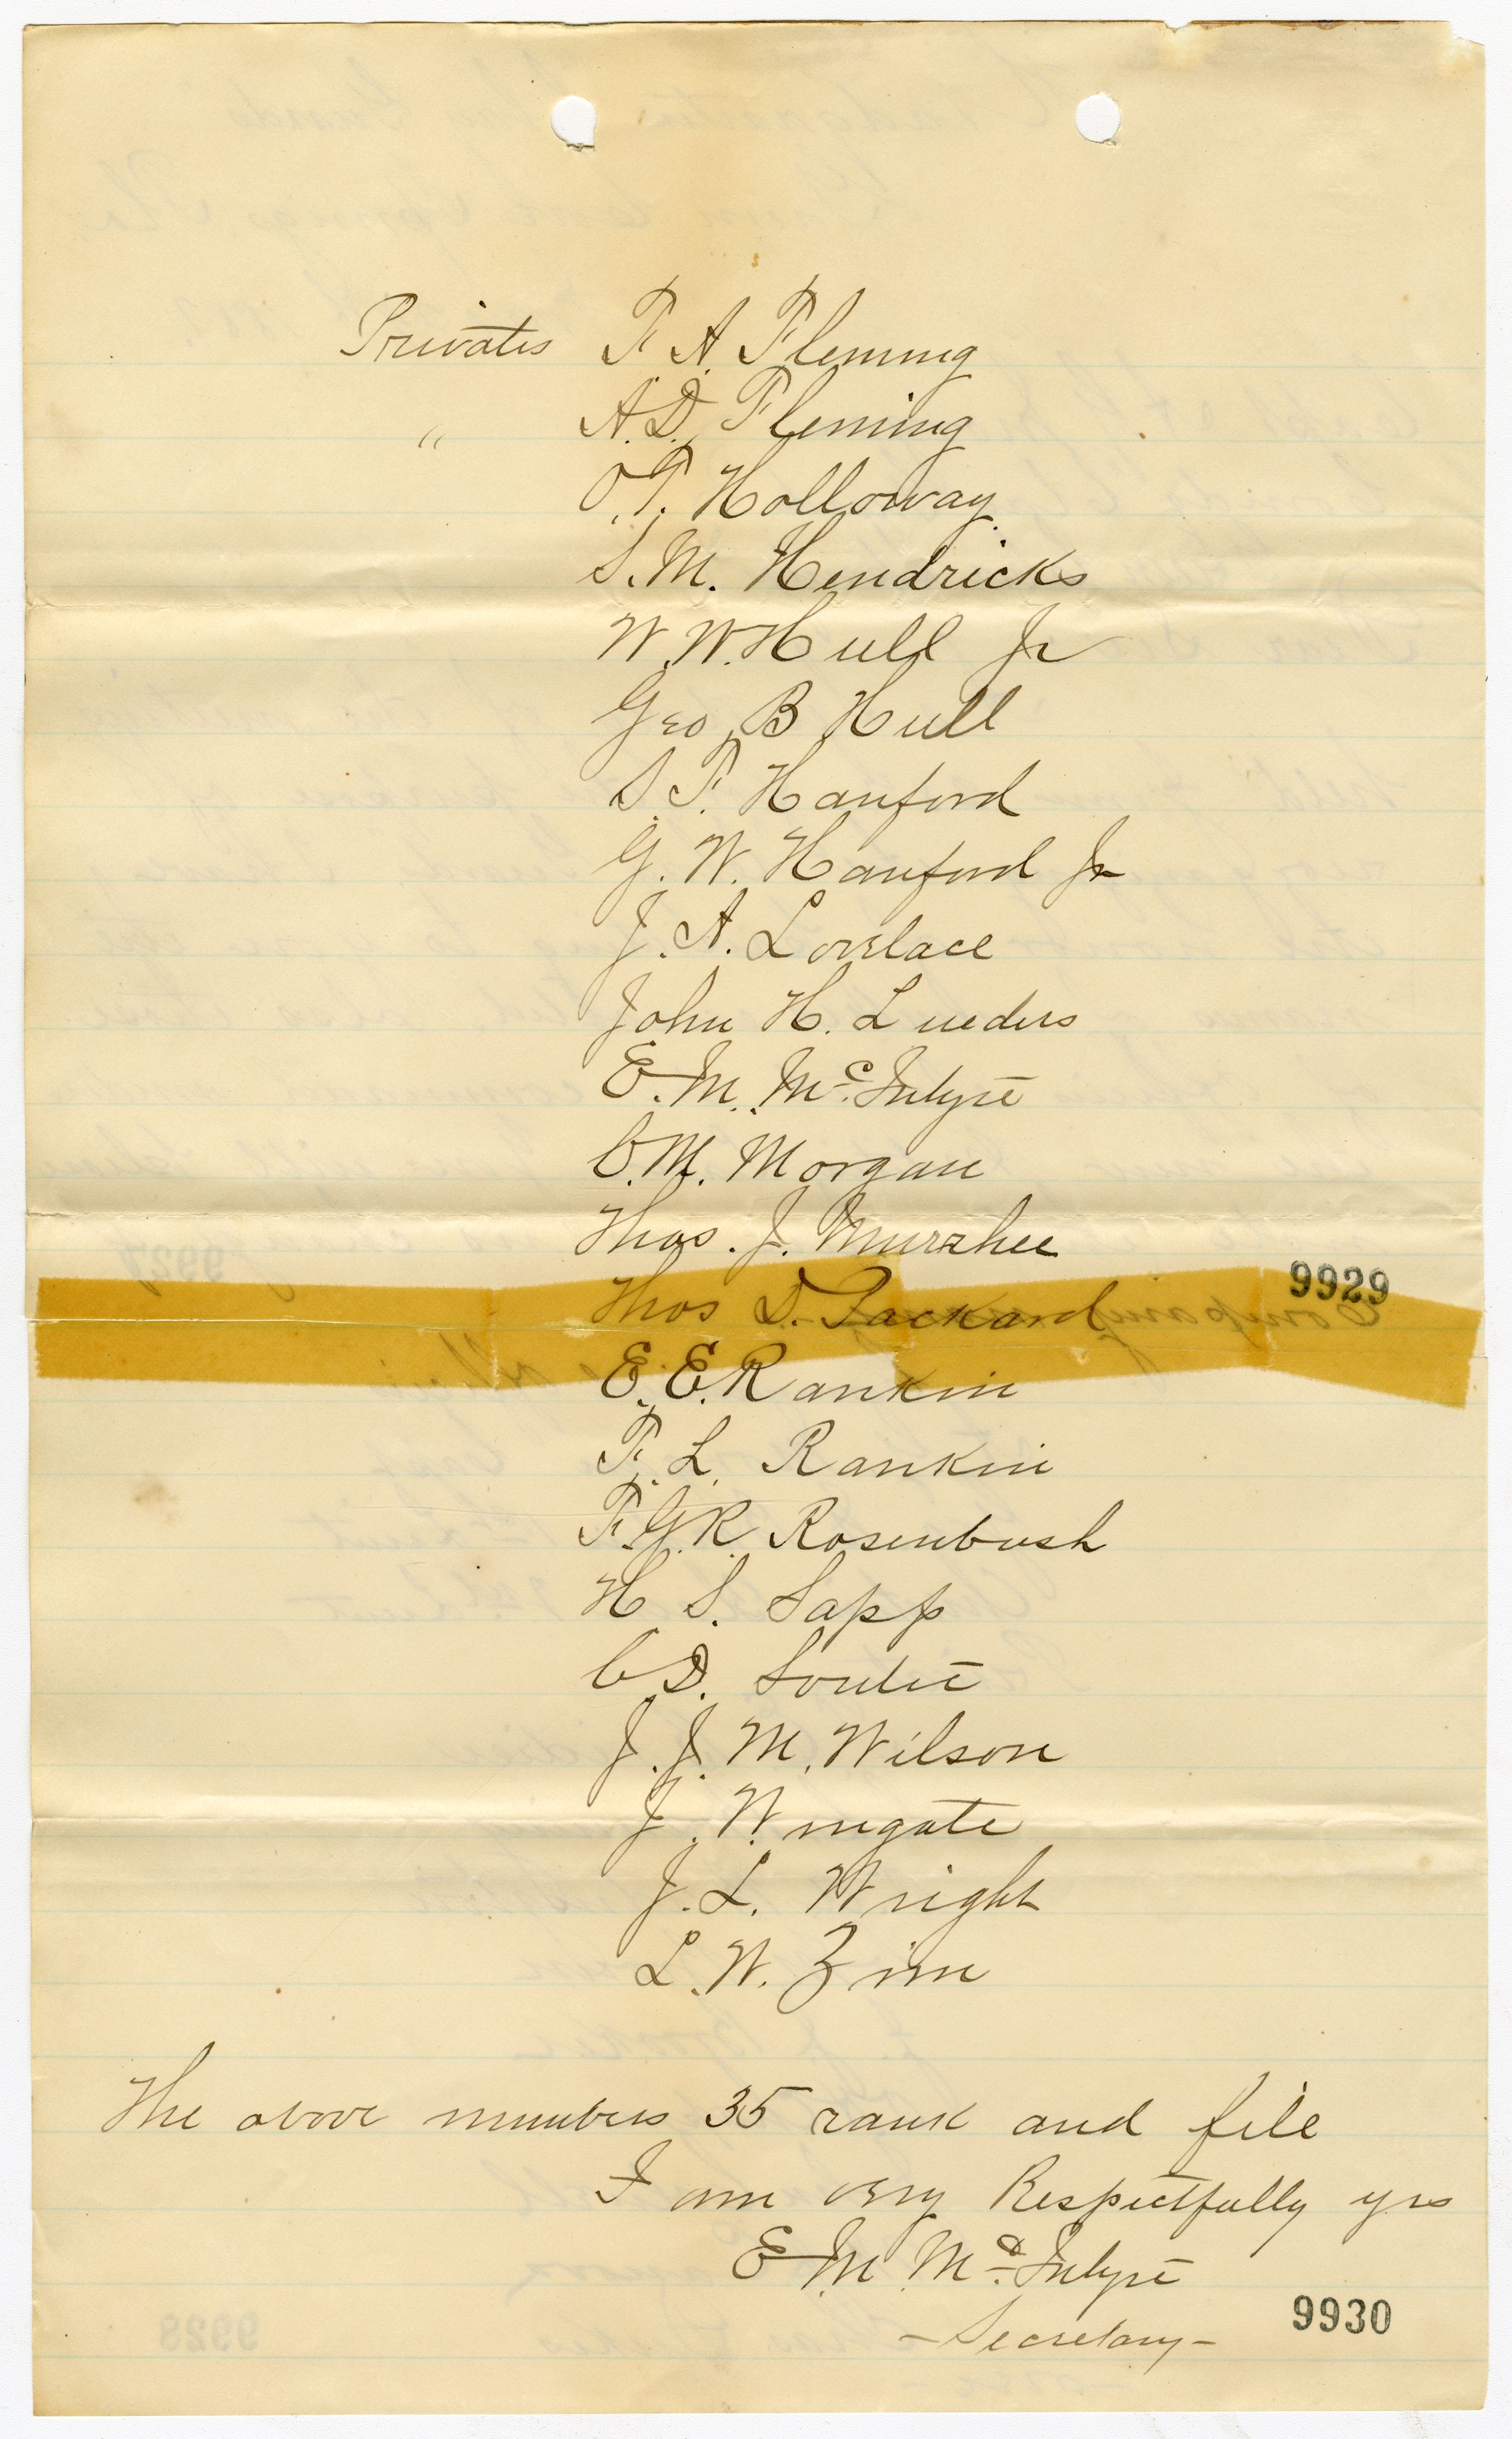 Privates F. A. Fleming
" A. D. Fleming
O. T. Holloway
S. M. Hendricks
W. W. Hull Jr
Geo. B Hull
S. F. Hanford
G. W. Hanford Jr
J. A. Lovelace
John H. Lueders
E. M. McIntyre
C. M. Morgan
Thos. J. Murzhee
9929
Thos D. Packard
E. E. Rankin
F. L. Rankin
F. G. R. Rosenbush
H S. Sapp
C D. Soutie
J. J. M. Wilson
J. Wingate
J. L. Wright
L. W. Zim
The above numbers 35 rank and file
I am very Respectfully yrs
E M McIntyre
9930
- Secretary -